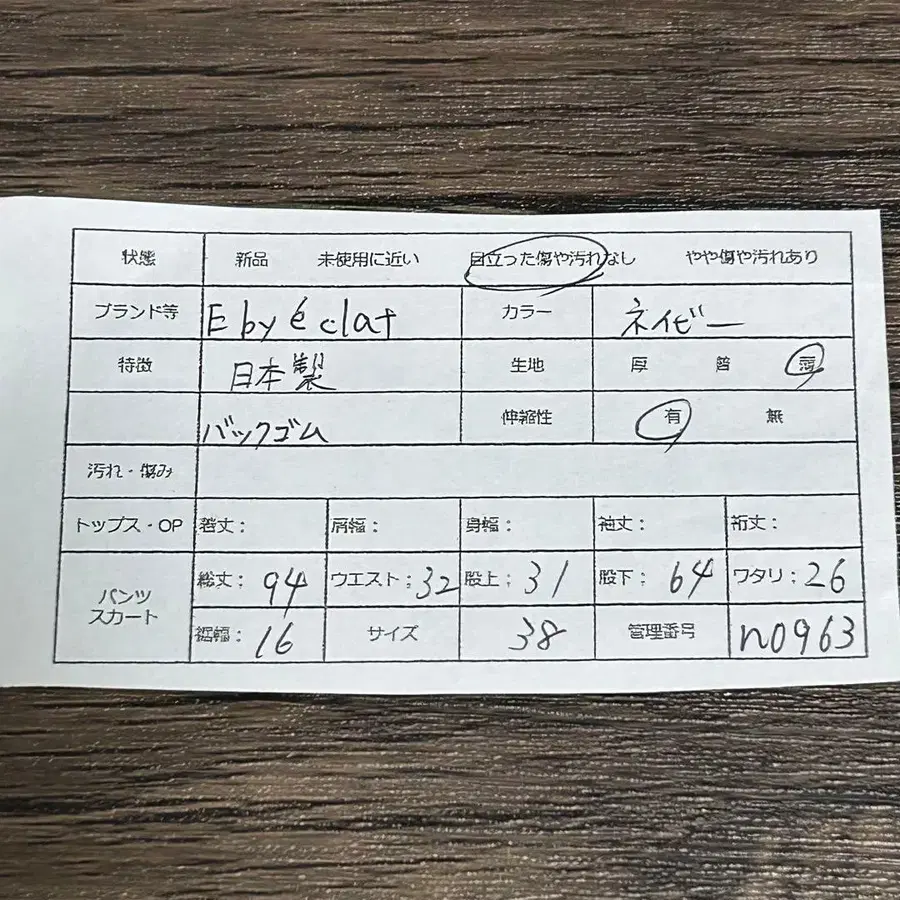 状態 新品 未使用に近い 目立った傷や汚れなし やや傷や汚れあり
ブランド等 E by é clat カラー ネイビー
特徴 日本製 生地 厚 普 薄
バックゴム 伸縮性 有 無
汚れ・傷み
トップス・OP 着丈： 肩幅： 身幅： 袖丈： 裄丈：
パンツ スカート 総丈：94 ウエスト：32 股上：31 股下：64 ワタリ：26
裾幅：16 サイズ 38 管理番号 n0963